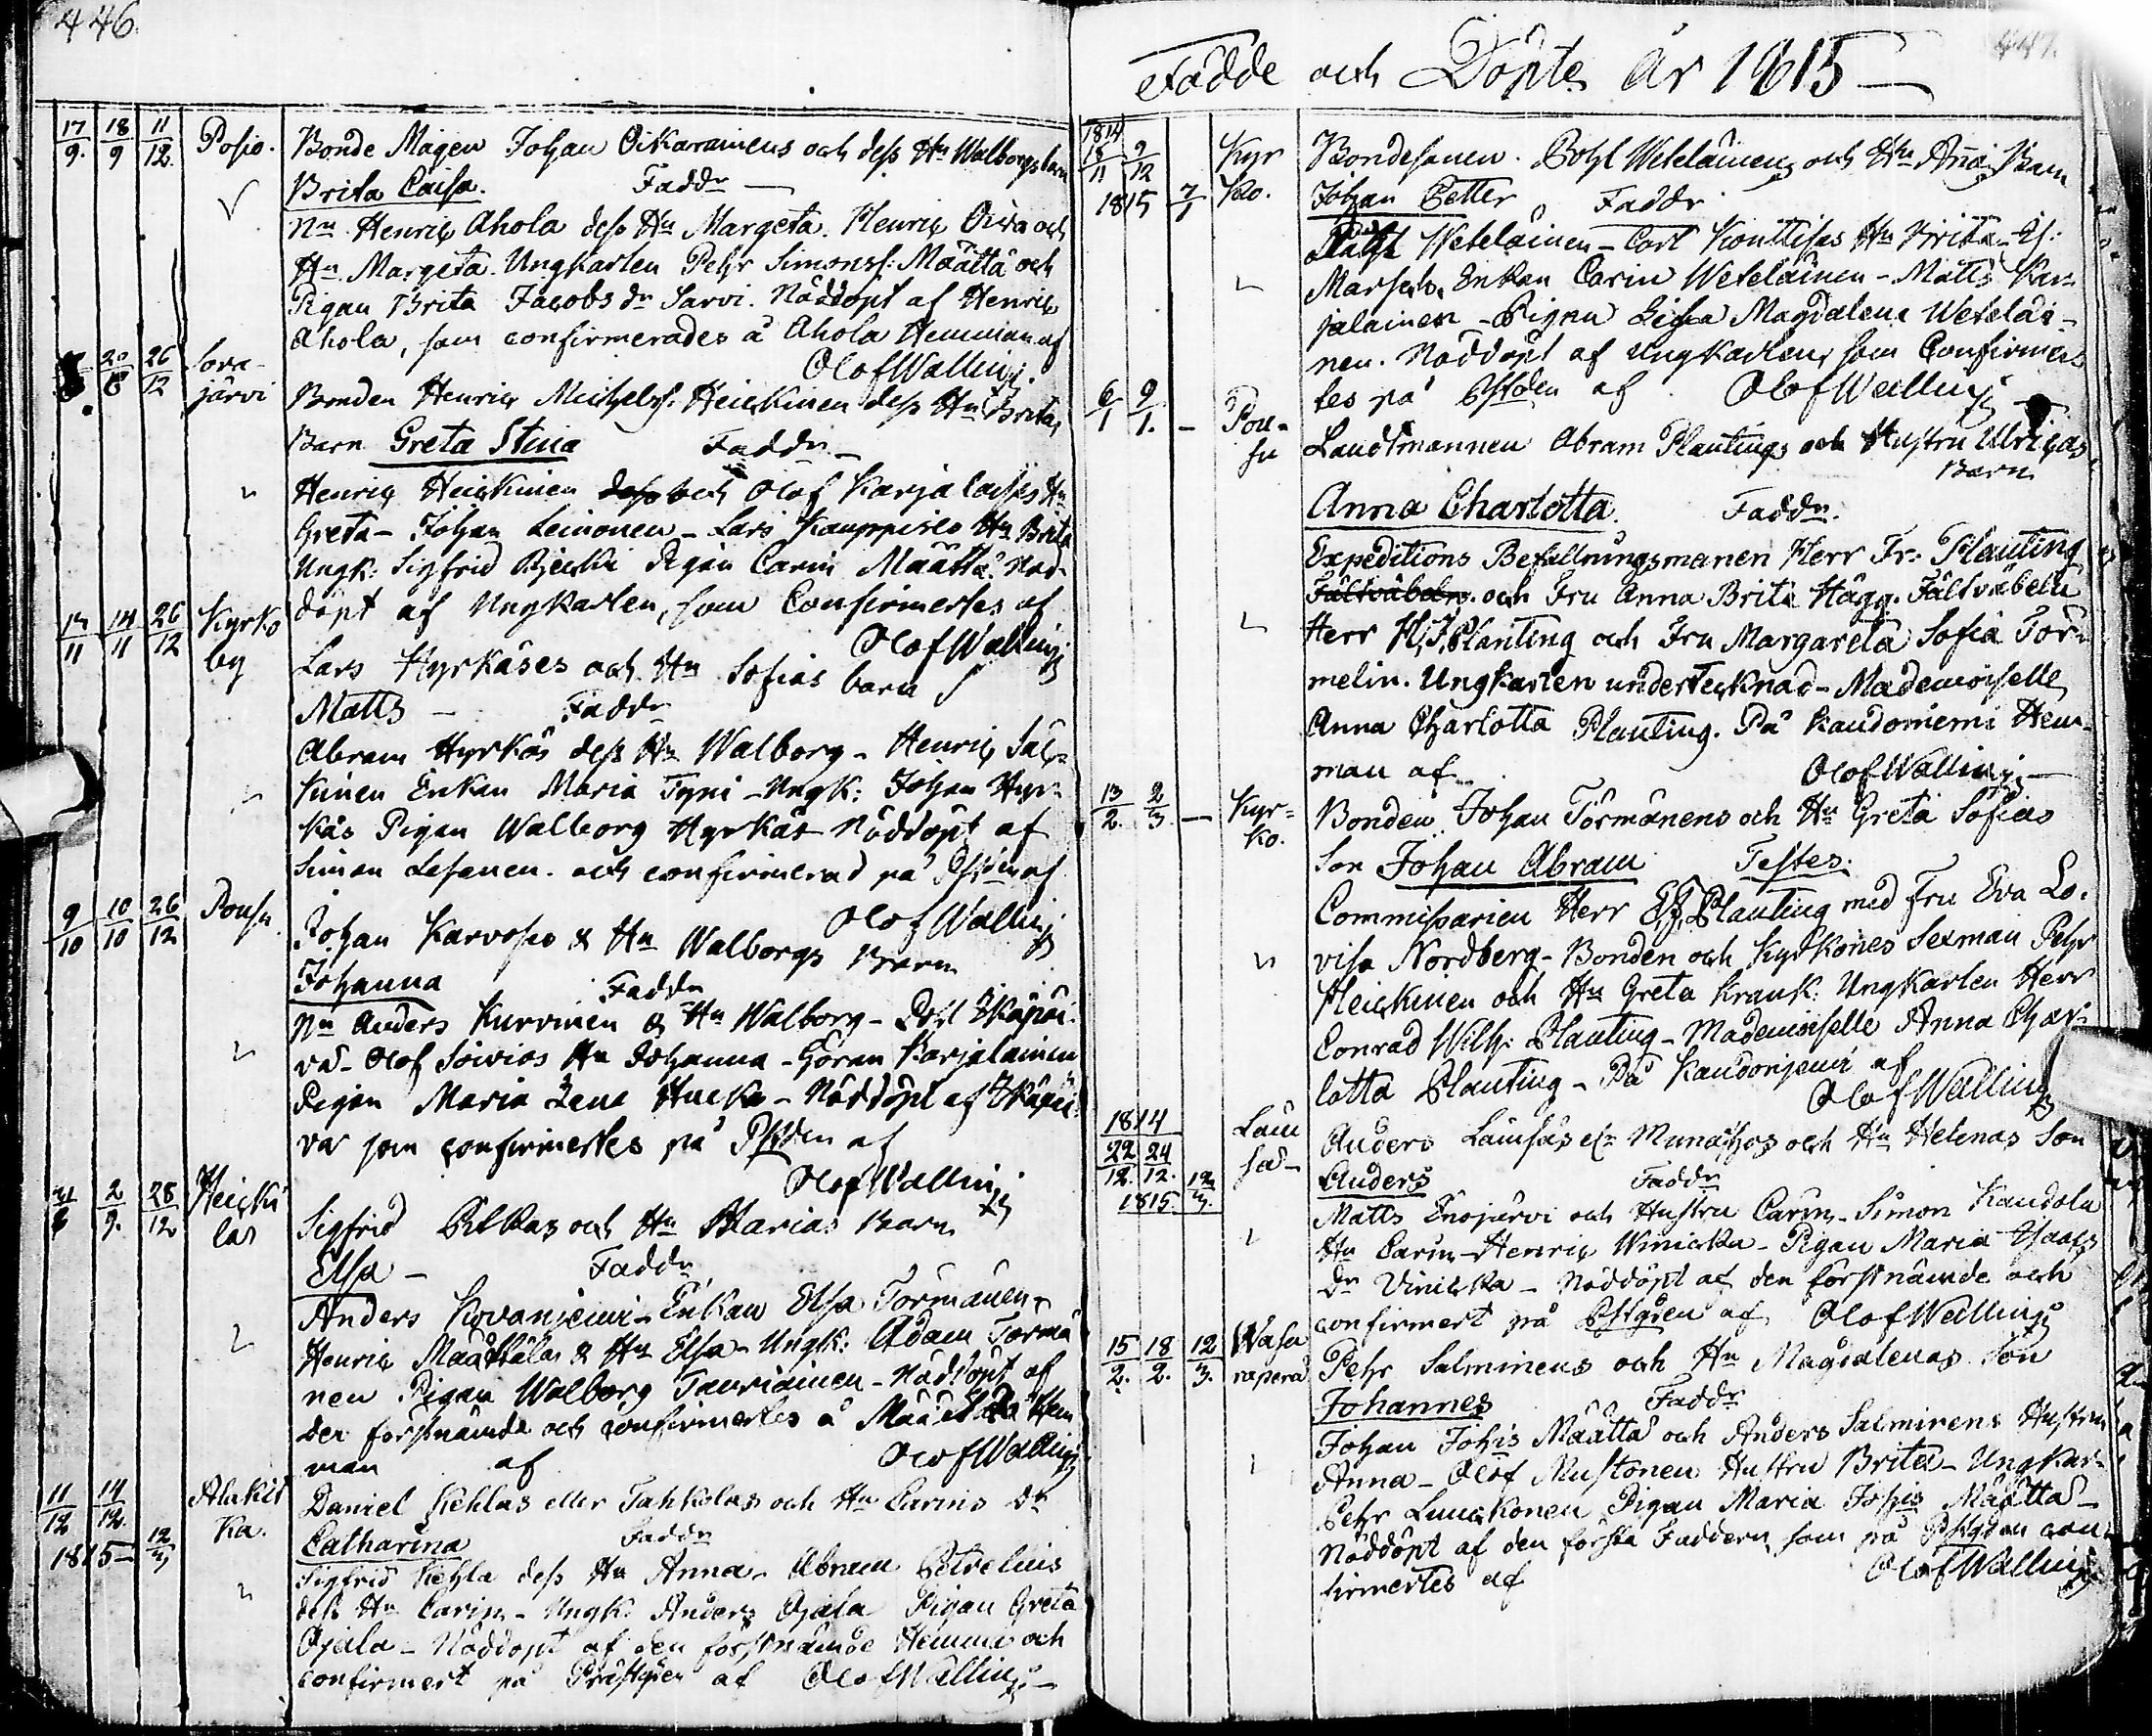 446.
17/9. 18/9 11/12. Posio. Bonde Mågen Johan Oikarainens och dess Hu Walborgs barn
Brita Caisa. Faddr
Nn Henric Ahola dess Hu Margeta. Henric Oiva och
Hu Margeta. Ungkarlen Pehr Simonss: Määttä och
Pigan Brita Jacobs dr Sarvi. Nöddöpt af Henric
Ahola, som confirmerades å Ahola Hemman af
Olof Wallin
20/8 26/12 Sova-
järvi Bonden Henric Michelss: Heickinen dess Hu Brita,
Barn Greta Stina Faddr
Henric Heickinen och Olof Karjalaises Hu
Greta - Johan Leinonen - Lars Kauppises Hu Brita
Ungk: Sigfrid Pigan Carin Määttä. Nöd-
döpt af Ungkarlen, som Confirmertes af
Olof Wallin
14/11 26/12 Kyrko
by Lars Hyrkäses och Hu Sofias barn
Matts - Faddr
Abram Hyrkäs dess Hu Walborg - Henric Säk-
kinen Enkan Maria Tyni - Ungk: Johan Hyr-
käs Pigan Walborg Hyrkäs Nöddöpt af
Simon Lesonen. och confirmerad på af
Olof Wallin
9/10 10/10 26/12 Pousu Johan Karvoses & Hu Walborgs Barn
Johanna Faddr
Nn Anders Kurvinen & Hu Walborg -
Olof Soivios Hu Johanna - Göran Karjalainen
Pigan Maria Lena - Nöddöpt af
var som confirmertes på af
Olof Wallin
2/9. 28/12 Heicki
las Sigfrid Pilkas och Hu Marias Barn
Elsa - Faddr
Anders Kovaniemi - Enkan Elsa Törmänen -
Henric Määttälä & Hu Elsa - Ungk: Adam Törmä
nen Pigan Walborg Tauriainen - Nöddöpt af
den förstnämde och confirmertes å Määttälä Hem
man af Olof Wallin
11/12 14/12. Alakit
ka. Daniel Kehlas eller Tahkolas och Hu Carins dr
1815 - 12/3 Catharina Faddr
Sigfrid Kehla dess Hu Anna - Abram Petrelius
dess Hu Carin - Ungk: Anders Ojala Pigan Greta
Ojala - Nöddöpt af den förstnämde Hemma och
confirmert på Prästgden af Olof Wallin -
447.
Födde och Döpte År 1815 -
1814
18/11 2/12 Kyr
ko. Bondesonen. Pohl Weteläinens och Hu Anna Barn
1815 7/1 Johan Petter Faddr
Weteläinen - Carl Konttises Hu Brita -
Enkan Carin Weteläinen - Matts Kar-
jalainen - Pigan Lisa Magdalena Weteläi-
nen. Nöddöpt af Ungkarlen, som Confirmer
tes på af Olof Wallin
6/1 9/1. - Pou-
su Landtmannen Abram Plantings och Hustru Ulricas
Barn
Anna Charlotta. Faddr.
Expeditions Befallningsmanen Herr Fr: Planting
Fältväbeln. och Fru Anna Brita Hägg. Fältväbeln
Herr H. J. Planting och Fru Margareta Sofia Tör-
melin. Ungkarlen undertecknad - Mademoiselle
Anna Charlotta Planting. På Kaudoniemi Hem-
man af Olof Wallin -
13/2. 2/3 - Kyr-
ko. Bonden Johan Törmänens och Hu Greta Sofias
Son Johan Abram Testes:
Commissarien Herr E. J. Planting med Fru Eva Lo-
visa Nordberg - Bonden och Kyrkones Sexman Pehr
Heickinen och Hu Greta Krank. Ungkarlen Herr
Conrad Wilh: Planting - Mademoiselle Anna Char-
lotta Planting - På Kaudonjemi af
Olof Wallin
1814
22/12. 24/12. Läm
sä - Anders Lämsäs och Hu Helenas Son
12/3. Anders Faddr
1815. Matts Enojärvi och Hustru Carin, - Simon Kandola
Hu Carin - Henric Winicka - Pigan Maria Isaacs
dr Vinicka - Nöddöpt af den förstnämde och
confirmert på af Olof Wallin
15/2. 18/2. 12/3. Wasa
rapera Pehr Salminens och Hu Magdalenas Son
Johannes Faddr
Johan Johis Määttä och Anders Salminens Hustru
Anna - Olof Mustonen Hustru Brita - Ungkar-
Pehr Lunckonen Pigan Maria Johis Määttä -
Nöddöpt af den första Faddern, som på con-
firmertes af Olof Wallin